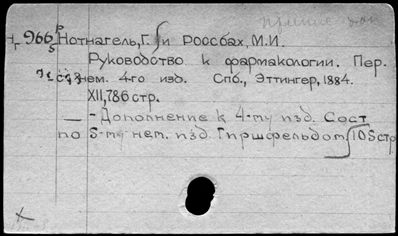 966 Нотнагель, Г. и Россбах, М.И.
Руководство к фармакологии. Пер.
с нем. 4го изд. Спб., Эттингер, 1884.
XII, 786 стр.
— - Дополнение к 4-му изд. Сост
по 5-му нем. изд. Гиршфельдом 105 стр